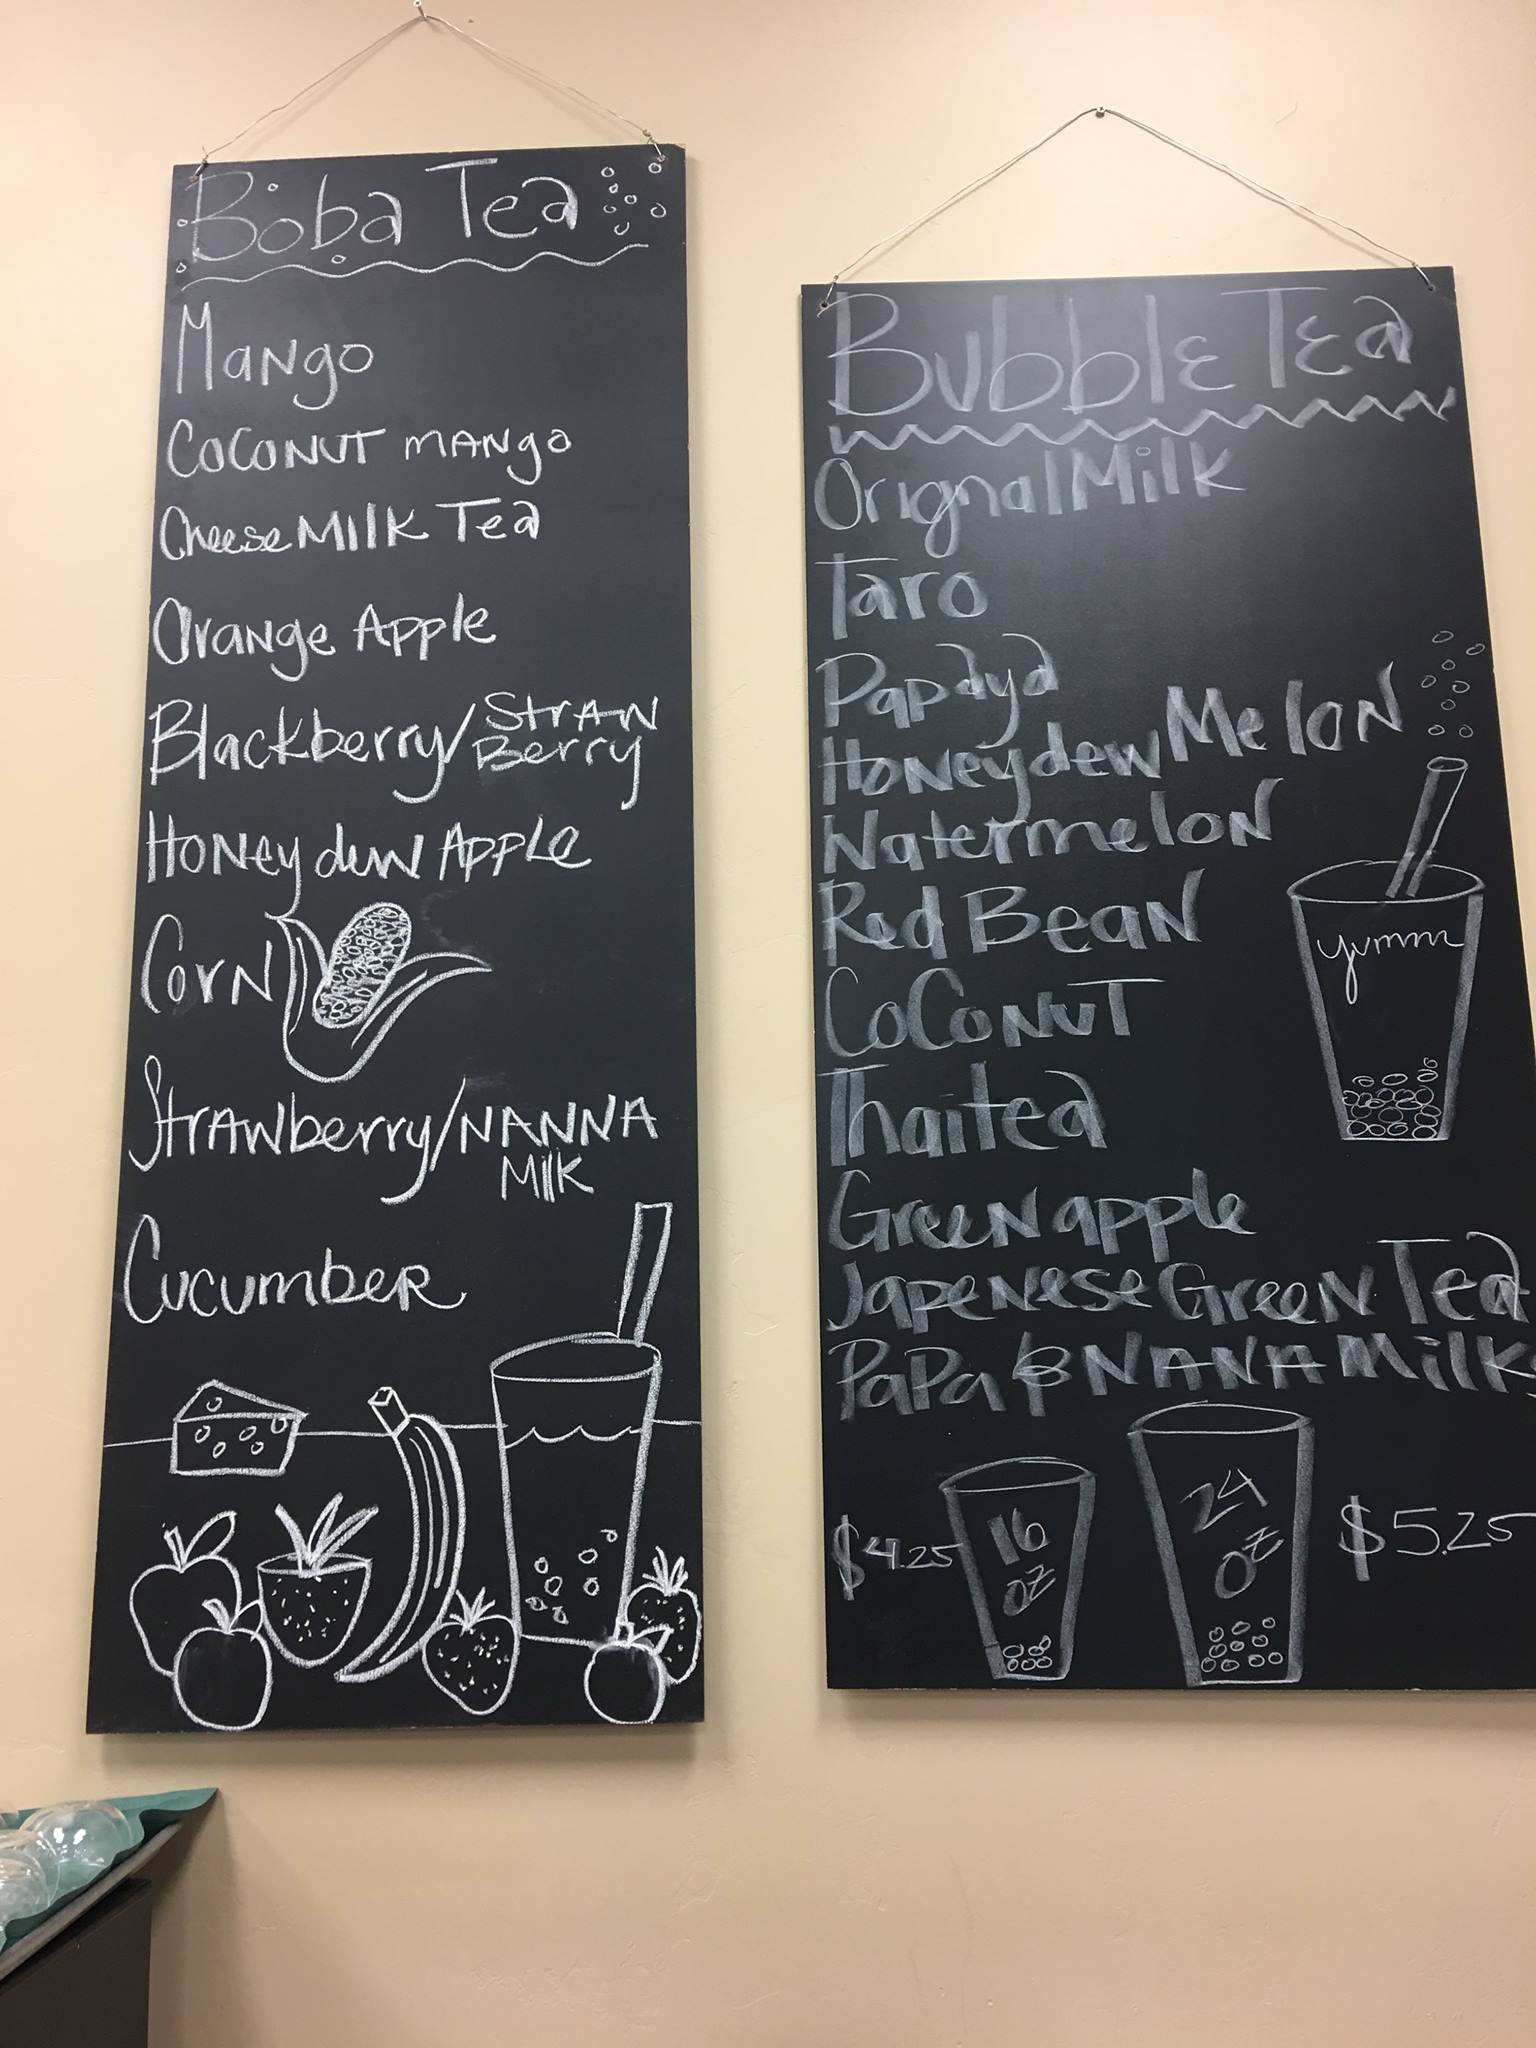 Boba Tea
Mango
Coconut mango
Cheese Milk Tea
Orange Apple
Blackberry/Straw
Berry
Honeydew Apple
Corn
Strawberry/NANNA
Milk
Cucumber
Bubble Tea
Orignal Milk
Taro
Papaya
Honeydew Melon
Watermelon
Red Bean
Coconut
Thai tea
yumm
Green apple
Japenese Green Tea
Papa & NANA Milk
$4.25
16
oz
24
oz
$5.25